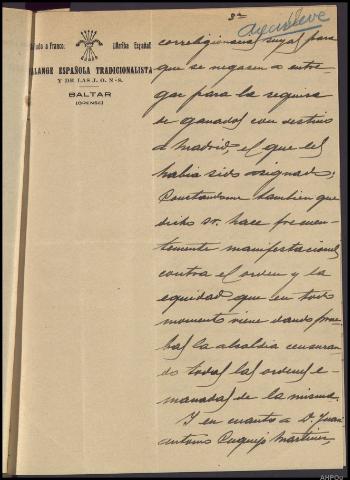 3ª
diecinueve
Saludo a Franco: ¡Arriba España!
FALANGE ESPAÑOLA TRADICIONALISTA
Y DE LAS J. O. N-S.
BALTAR
(ORENSE)
correligionarios suyos para
que se negasen a entre-
gar para la requisa
de ganados con destino
a Madrid el que les
habia sido asignado;
Constandome tambien que
dicho Sr. hace frecuen-
temente manifestaciones
contra el orden y la
equidad que en todo
momento viene dando prue-
bas la alcaldia censuran
do todas las ordenes e-
manadas de la misma.
Y en cuanto a D. Juan
Antonio Martinez,
AHPOu